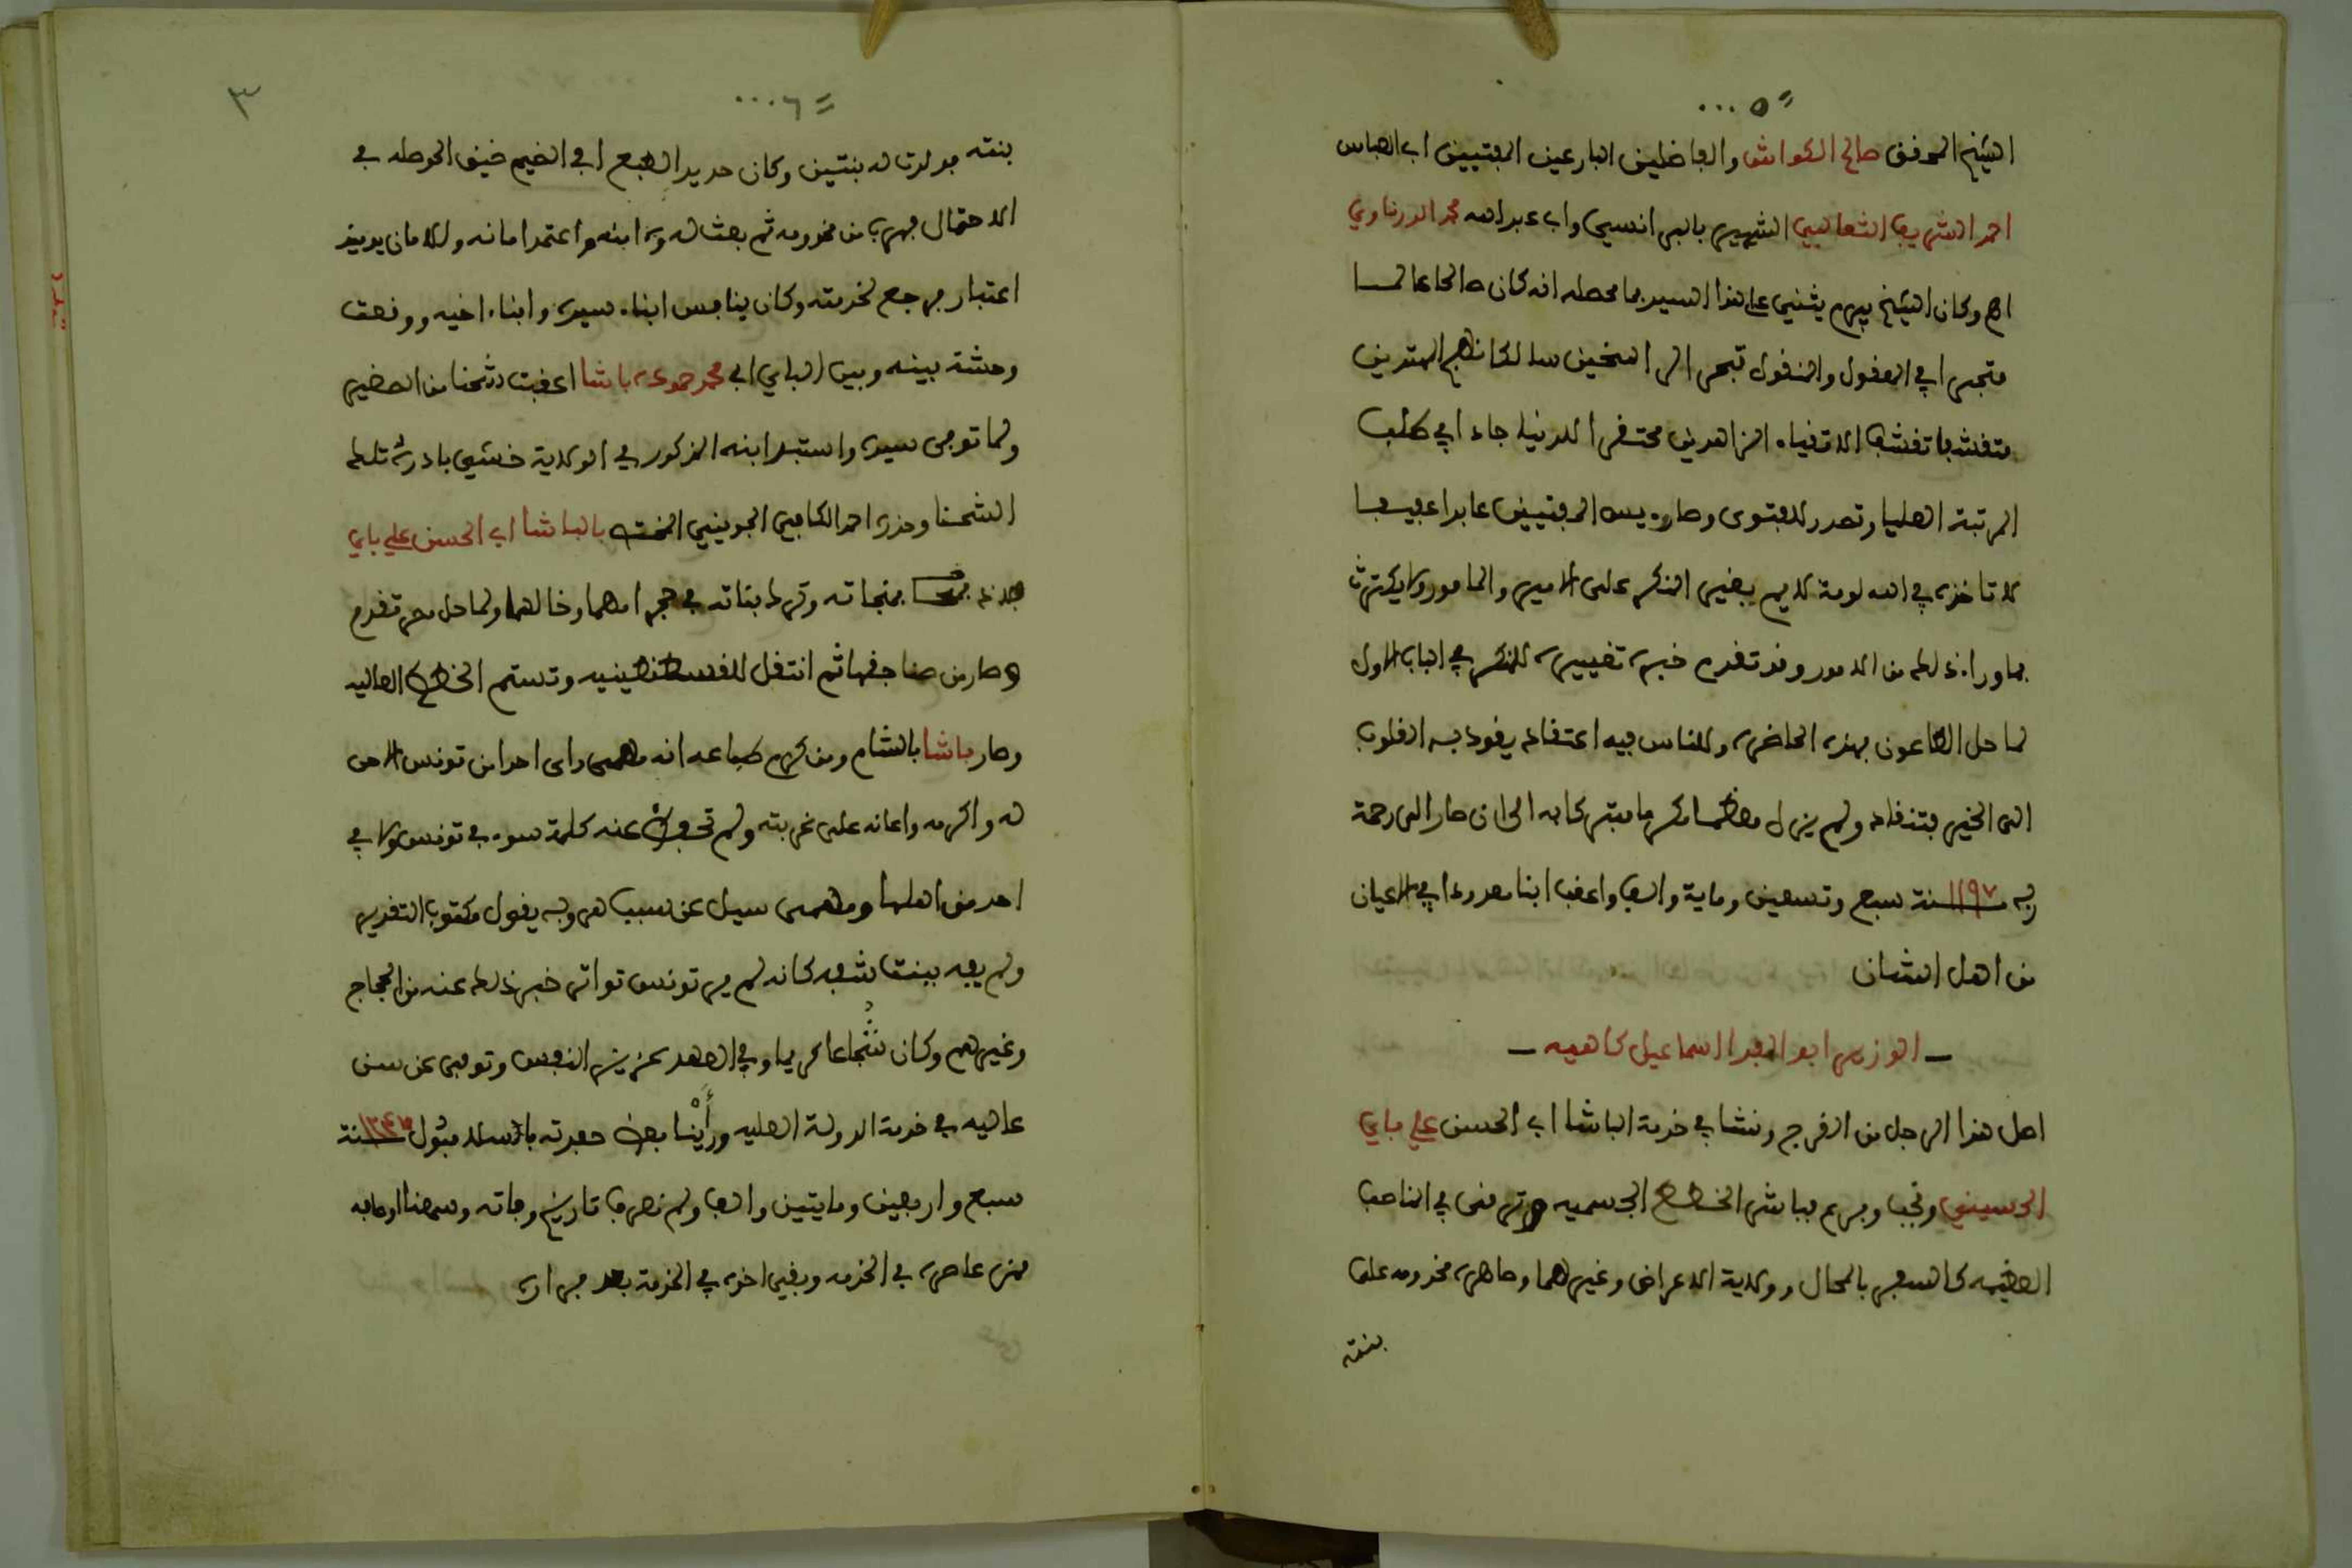 = ٥ ...
الشيخ المحفق صالح الكواش والفاضلين البارعين المفتيين اب العباس
احمد الشريف الثعالبي الشهير بالبرانسي واب عبد الله محمد الورغاوي
اه وكان الشيخ بيرم يثني على هذا السيد بما محصله انه كان صالحا عالما
متبحرا في المعفول والمنفول تبحر الراسخين سالكا نهج المهتدين
متفشفا تفشف الاتفياء الزاهدين محتفرا للدنيا جاء في طلب
المرتبة العليا وتصدر للفتوى وصار ريس المفتيين عابدا عفيفا
لا تاخذه في الله لومة لايم يغير المنكر على الامير والمامور ولا يكترث
بما وراء ذلك من الامور وفد تفدم خبر تغييره للمنكر في الباب الاول
لما حل الطاعون بهذه الحاضره وللناس فيه اعتفاد يفود به الفلوب
الى الخير فتنفاد ولم يزل معظما مكرما متبركا به الى ان صار الى رحمة
ربه سنة ١١٩٧ سبع وتسعين وماية والف واعفب ابنا معدودا في الاعيان
من اهل الشان
— الوزير ابو الفدا اسماعيل كاهيه —
اصل هذا الرجل من الفرج ونشا في خدمة الباشا اب الحسن علي باي
الحسيني ونجب وبرع فباشر الخطط الجسميه وترفى في المناصب
العظيمه كالسفر بالمحال وولاية الاعراض وغيرهما وصاهره مخدومه على
بنته
= ٦ ...
٣
بنته فولدت له بنتين وكان حديد الطبع ابي الضيم ضيق الحوصله في
الاحتمال فهرب من مخدومه ثم بعث له وزه ابنه واعتمد امانه وللامان يوميذ
اعتبار فرجع لخدمته وكان ينافس ابناء سيده وابناء اخيه ووفعت
وحشة بينه وبين الباي ابي محمد حموده باشا اعفبت شحنا من الصغير
ولما توفى سيده واستبد ابنه المذكور في الولاية خشي بادرة تلك
الشحنا وحذره احمد الكافي الجويني المختص بالباشا اب الحسن علي باي
بنجاته وترك بناته في حجر امهما وخالهما ولما حل مصر تفدم
وصار من صناجفها ثم انتفل للفسطنطينيه وتسنم الخطط العاليه
وصار باشا بالشام ومن كرم طباعه انه مهمى راى احدا من تونس الا حن
له واكرمه واعانه على غربته ولم تحفظ عنه كلمة سوء في تونس ولا في
احد من اهلها ومهمى سيل عن سبب هروبه يفول مكتوب التفدير
ولم يفه ببنت شفه كانه لم ير تونس تواتر خبر ذلك عنه من الحجاج
وغيرهم وكان شجاعا كريما وفي العهد عزيز النفس وتوفى عن سن
عاليه في خدمة الدولة العليه ورأينا بعض حفدته بالاسلامبول سنة ١٢٤٧
سبع واربعين ومايتين والف ولم نعرف تاريخ وفاته وسمعنا اوصافه
ممن عاصره في الخدمه وبفي اخوه في الخدمة بعد فراره